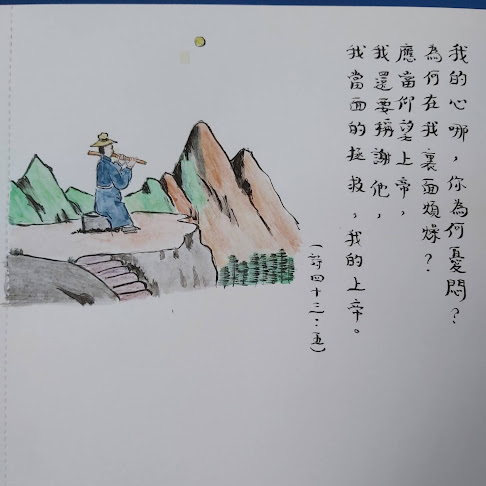 我的心哪，你為何憂悶？
為何在我裏面煩燥？
應當仰望上帝，
我還要稱謝他，
我當面的拯救，我的上帝。
（詩四十三：五）